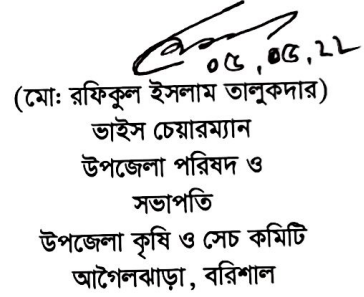 ০৫,০৫,২২
(মো: রফিকুল ইসলাম তালুকদার)
ভাইস চেয়ারম্যান
উপজেলা পরিষদ ও
সভাপতি
উপজেলা কৃষি ও সেচ কমিটি
আগৈলঝাড়া, বরিশাল